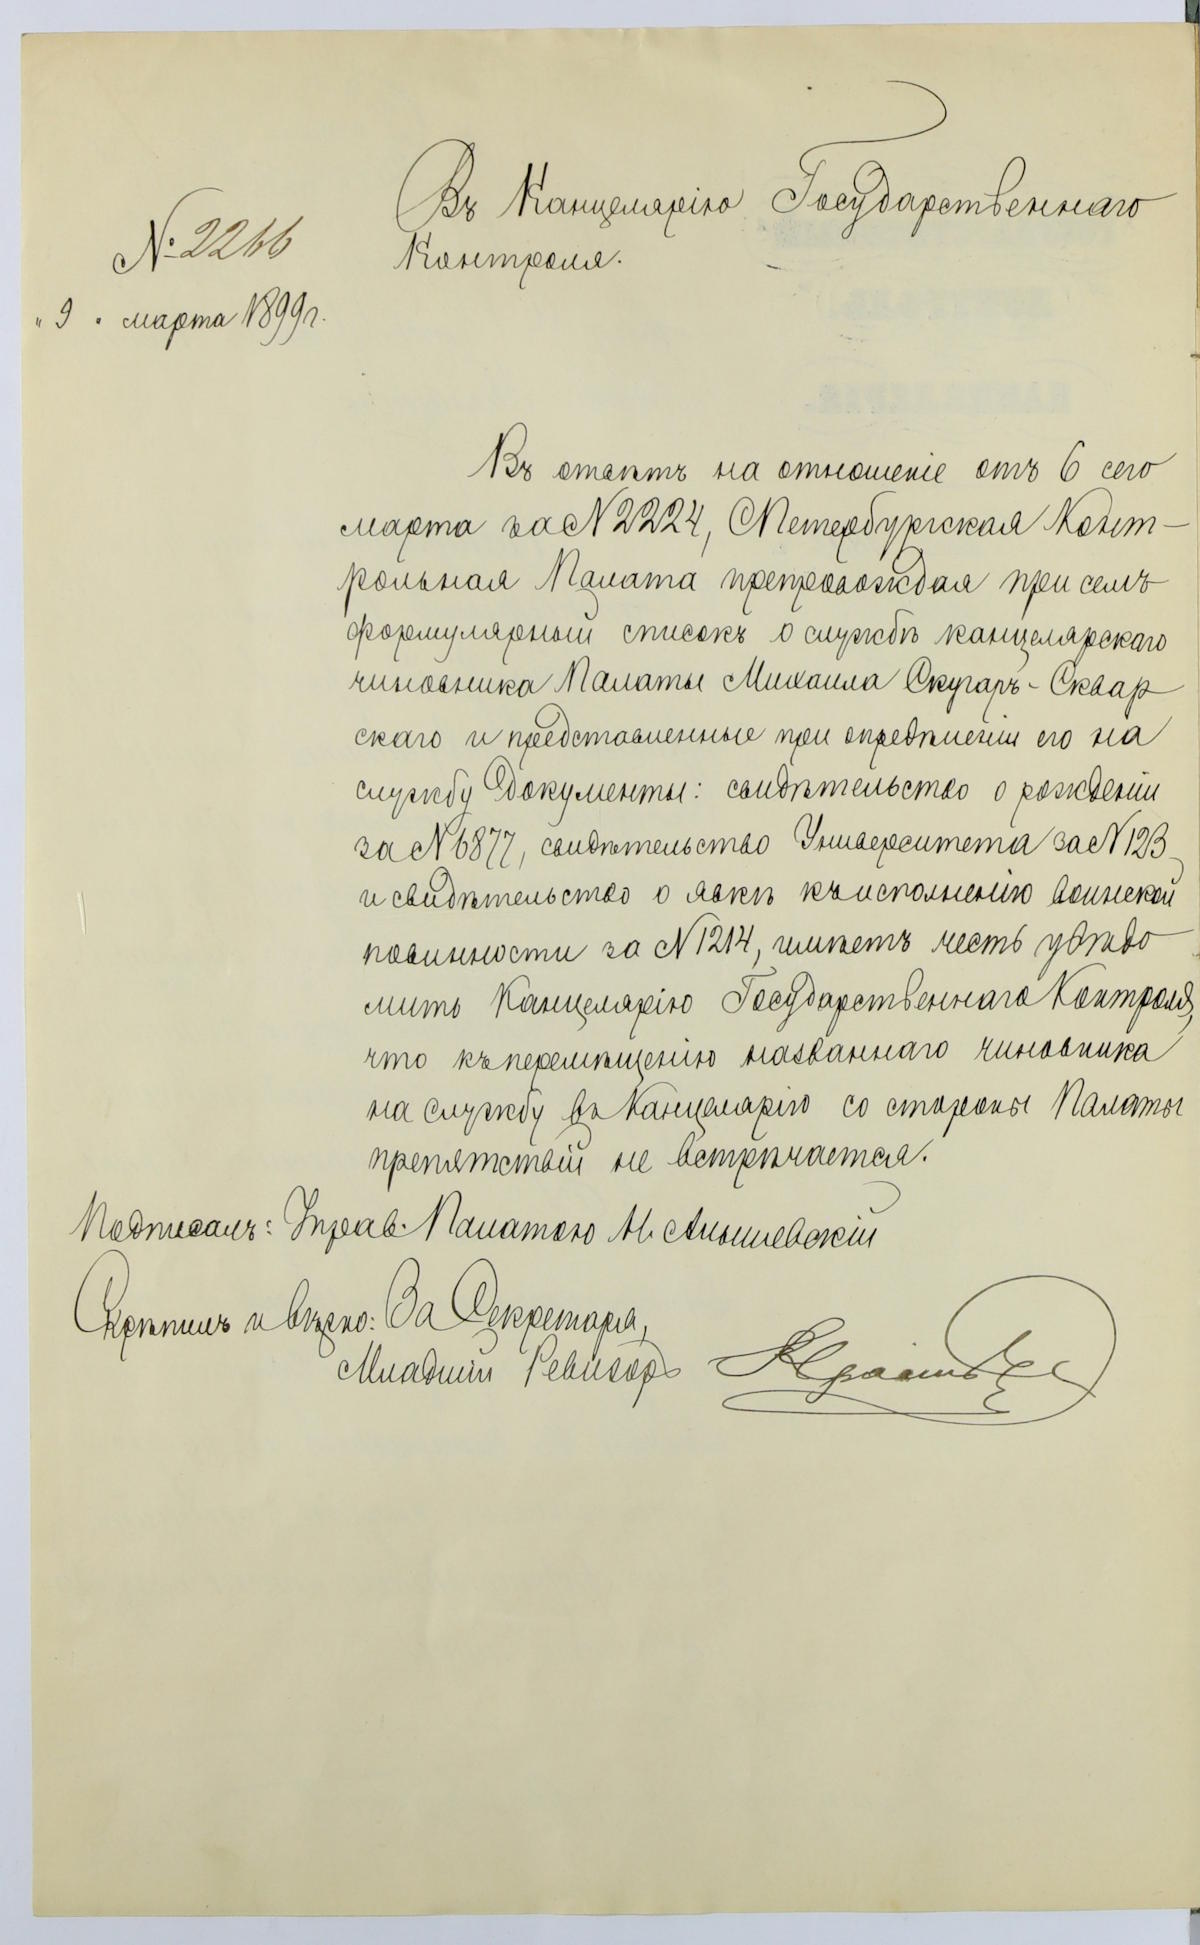 Въ Канцелярію Государственнаго
Контроля.
№ 2266
"9" марта 1899 г.
Въ отвѣтъ на отношеніе отъ 6 сего
марта за № 2224, СПетербургская Конт-
рольная Палата препровождая при семъ
формулярный списокъ о службѣ канцелярскаго
чиновника Палаты Михаила Скугаръ-Сквар
скаго и представленные при опредѣленіи его на
службу документы: свидѣтельство о рожденіи
за № 6877, свидѣтельство Университета за № 123
и свидѣтельство о явкѣ къ исполненію воинской
повинности за № 1214, имѣетъ честь увѣдо
мить Канцелярію Государственнаго Контроля,
что къ перемѣщенію названнаго чиновника
на службу въ Канцелярію со стороны Палаты
препятствій не встрѣчается.
Подписалъ: Управ. Палатою М.
Скрѣпилъ и вѣрно: За Секретаря,
Младшій Ревизоръ